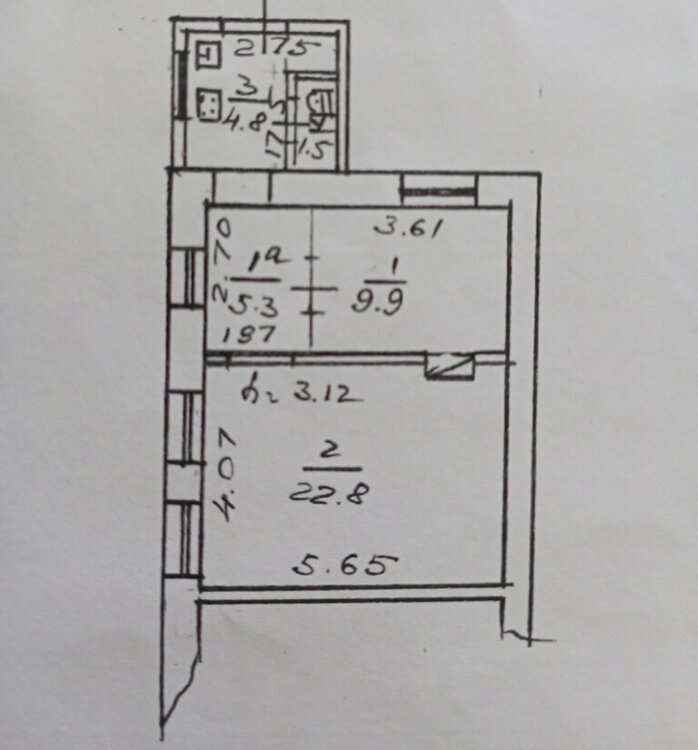 2.75
3
4.8
1.5
3.61
2.70
1a
5.3
1
9.9
197
h= 3.12
4.07
2
22.8
5.65